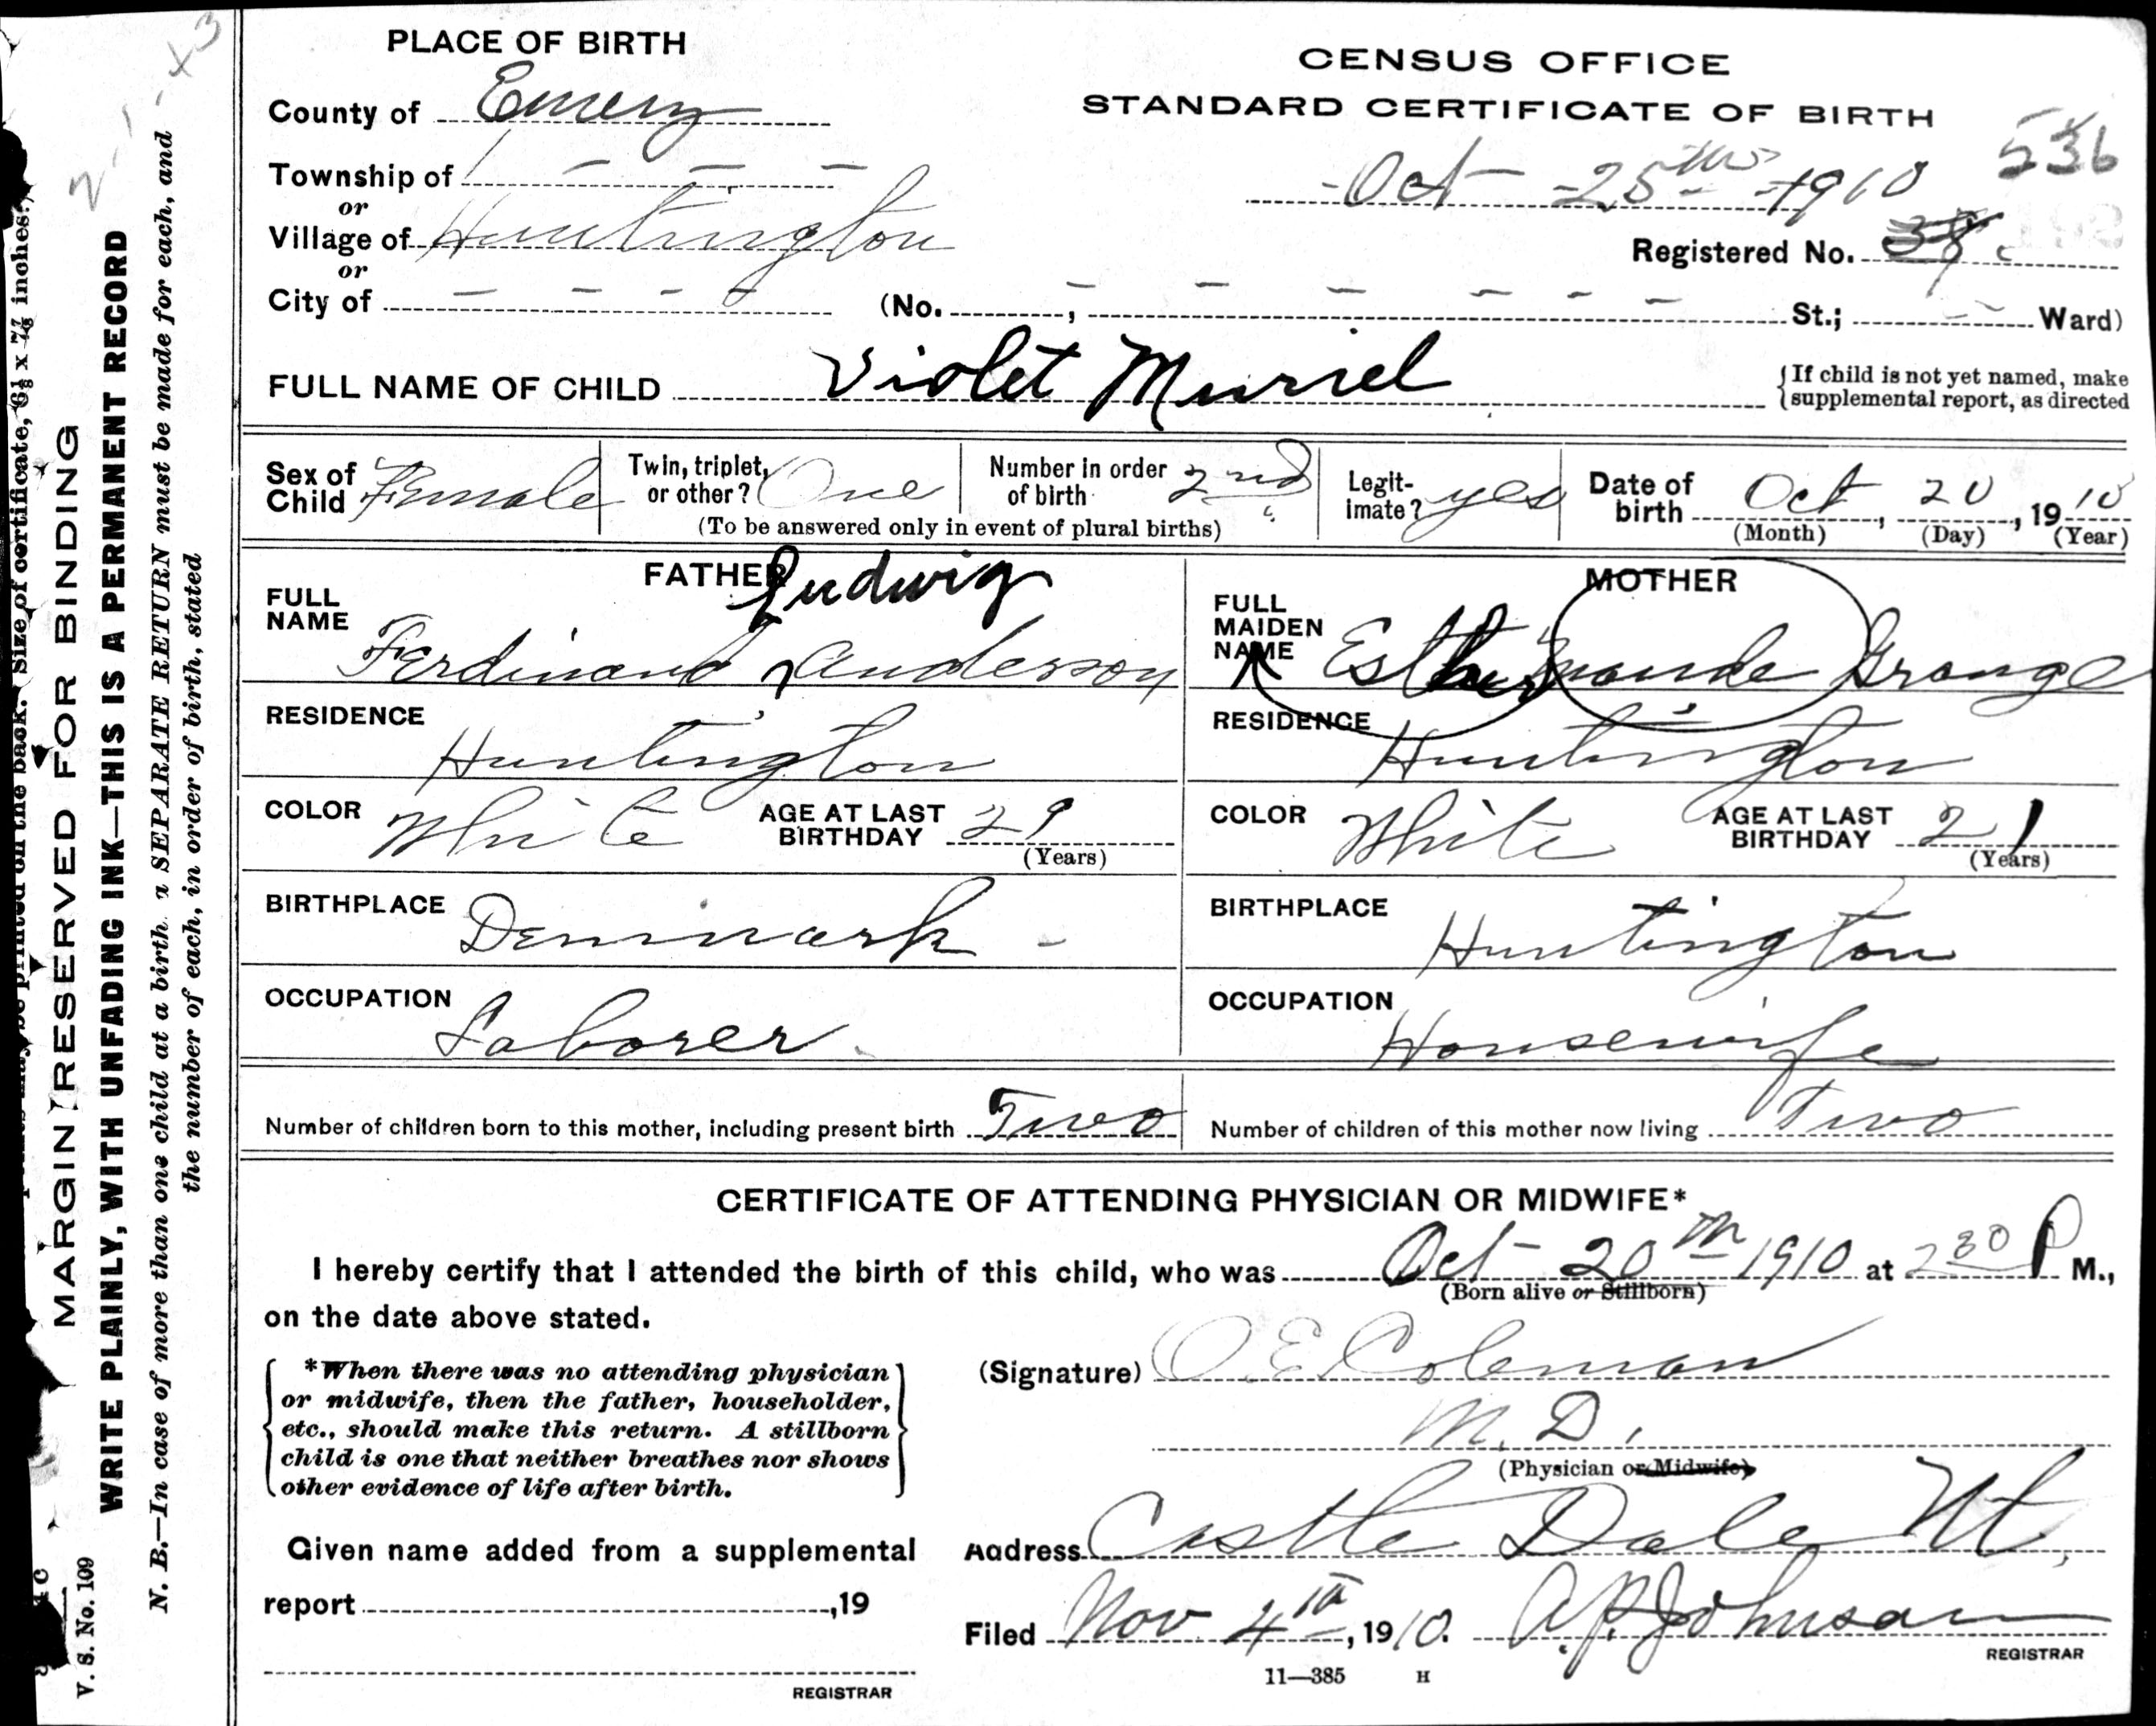 PLACE OF BIRTH
CENSUS OFFICE
STANDARD CERTIFICATE OF BIRTH
County of Emery
536
Township of
Oct 25th 1910
or
Village of Huntington
Registered No.
or
City of
(No. , St.; Ward)
FULL NAME OF CHILD Violet Muriel
{If child is not yet named, make
supplemental report, as directed
Sex of Child Female
Twin, triplet, or other? One
Number in order of birth 2nd
Legit-imate? yes
Date of birth Oct, 20, 1910
(To be answered only in event of plural births)
(Month) (Day) (Year)
FATHER
Ludwig
FULL NAME Ferdinand Anderson
RESIDENCE
Huntington
COLOR White AGE AT LAST BIRTHDAY 29
(Years)
BIRTHPLACE Denmark
OCCUPATION
Laborer
MOTHER
FULL MAIDEN NAME Esther Maude Grange
RESIDENCE
Huntington
COLOR White AGE AT LAST BIRTHDAY 21
(Years)
BIRTHPLACE
Huntington
OCCUPATION
Housewife
Number of children born to this mother, including present birth Two
Number of children of this mother now living Two
CERTIFICATE OF ATTENDING PHYSICIAN OR MIDWIFE*
I hereby certify that I attended the birth of this child, who was Oct 20th 1910 at 230 P M.,
(Born alive or Stillborn)
on the date above stated.
{ *When there was no attending physician
or midwife, then the father, householder,
etc., should make this return. A stillborn
child is one that neither breathes nor shows
other evidence of life after birth. }
(Signature) O E Coleman
M. D.
(Physician or Midwife)
Given name added from a supplemental
report ,19
REGISTRAR
Address Castle Dale Ut.
Filed Nov 4th, 1910. A.P. Johnson
REGISTRAR
11—385 H
MARGIN RESERVED FOR BINDING
WRITE PLAINLY, WITH UNFADING INK—THIS IS A PERMANENT RECORD
N. B.—In case of more than one child at a birth a SEPARATE RETURN must be made for each, and
the number of each, in order of birth, stated
V. S. No. 109
be printed on the back. Size of certificate, 6⅛ x 7⅞ inches.)